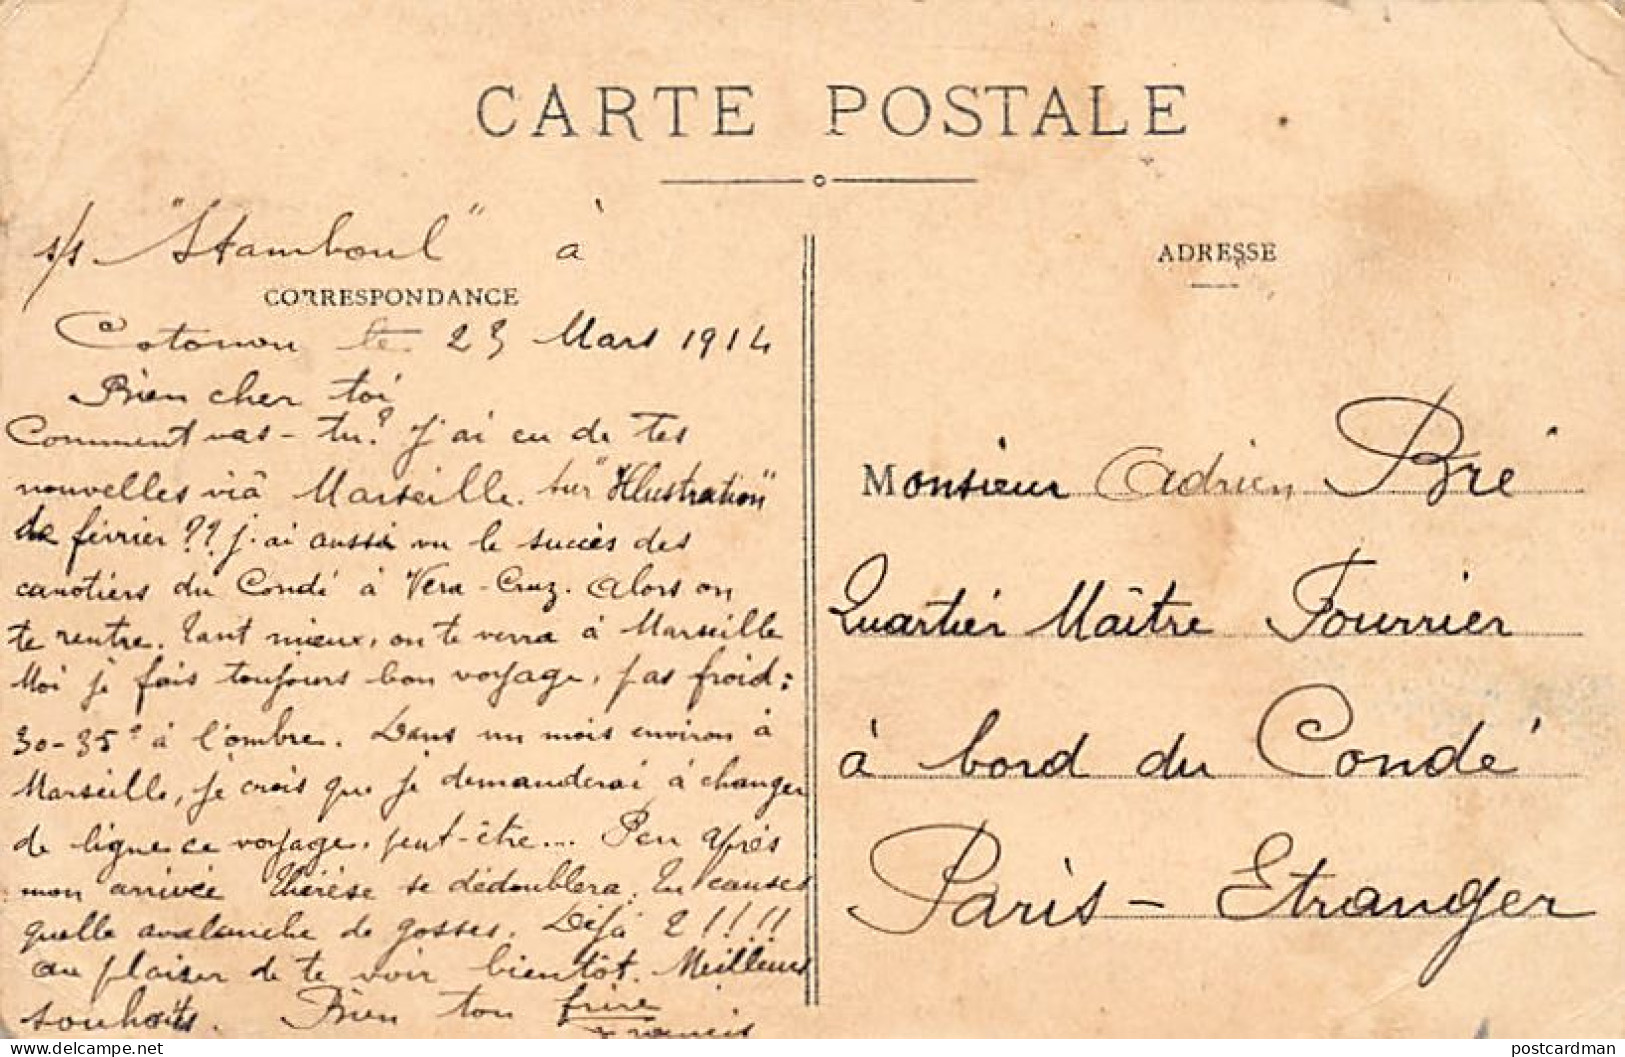 CARTE POSTALE
s/s "Stamboul" à
CORRESPONDANCE
Cotonou le 23 Mars 1914
Bien cher toi
Comment vas-tu? J'ai eu de tes
nouvelles viâ Marseille. Sur "Illustration"
de février ?? j'ai aussi vu le succès des
canotiers du Condé à Vera-Cruz. Alors on
te rentre. Tant mieux, on te verra à Marseille
Moi je fais toujours bon voyage, pas froid:
30-35° à l'ombre. Dans un mois environ à
Marseille, je crois que je demanderai à changer
de ligne ce voyage, peut-être... Peu après
mon arrivée Thérèse se dédoublera. Tu causes
quelle avalanche de gosses. Déjà 2!!!!
au plaisir de te voir bientôt. Meilleurs
souhaits. Bien ton frère
Francis
ADRESSE
Monsieur Adrien Bré
Quartier Maître Fourrier
à bord du Condé
Paris - Etranger
postcardman